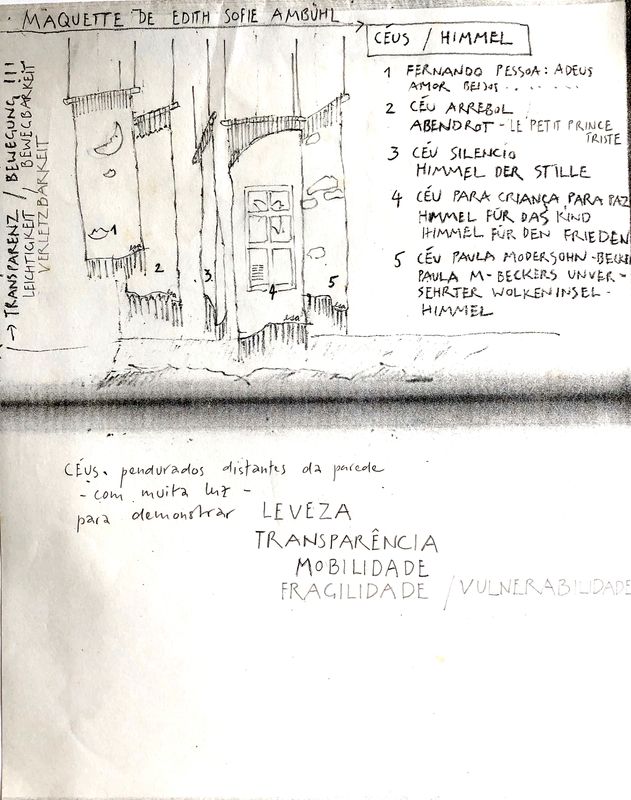 MAQUETTE DE EDITH SOFIE AMBÜHL
CÉUS / HIMMEL
1 FERNANDO PESSOA: ADEUS
AMOR BEIJOS . . . . . . .
2 CÉU ARREBOL
ABENDROT - LE PETIT PRINCE
TRISTE
3 CÉU SILENCIO
HIMMEL DER STILLE
4 CÉU PARA CRIANÇA PARA PAZ
HIMMEL FÜR DAS KIND
HIMMEL FÜR DEN FRIEDEN
5 CÉU PAULA MODERSOHN-BECKE
PAULA M-BECKERS UNVER-
SEHRTER WOLKENINSEL-
HIMMEL
→ TRANSPARENZ / BEWEGUNG !!!
LEICHTIGKEIT / BEWEGBARKEIT
VERLETZBARKEIT
1
2
3
4
5
esa
esa
esa
esa
CÉUS. pendurados distantes da parede
- com muita luz -
para demonstrar LEVEZA
TRANSPARÊNCIA
MOBILIDADE
FRAGILIDADE / VULNERABILIDADE